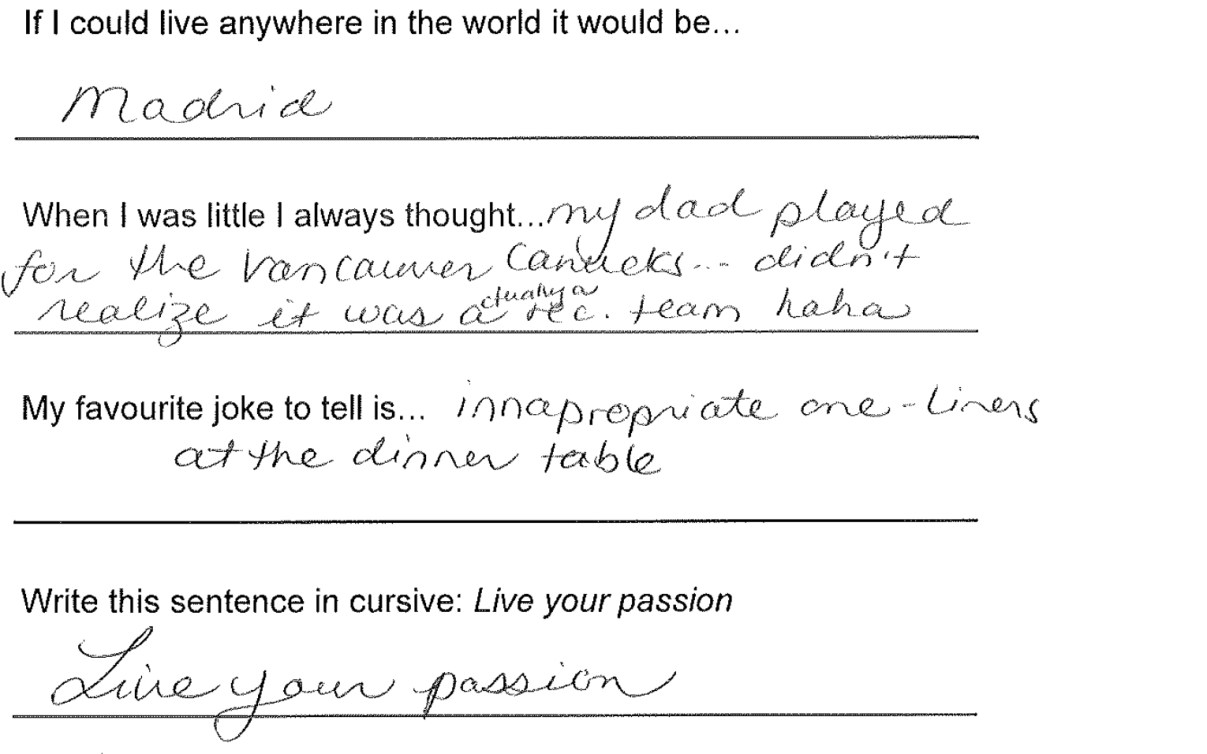 If I could live anywhere in the world it would be...
Madrid
When I was little I always thought...my dad played
for the Vancouver Canucks... didn't
realize it was actually a rec. team haha
My favourite joke to tell is... innapropriate one-liners
at the dinner table
Write this sentence in cursive: Live your passion
Live your passion